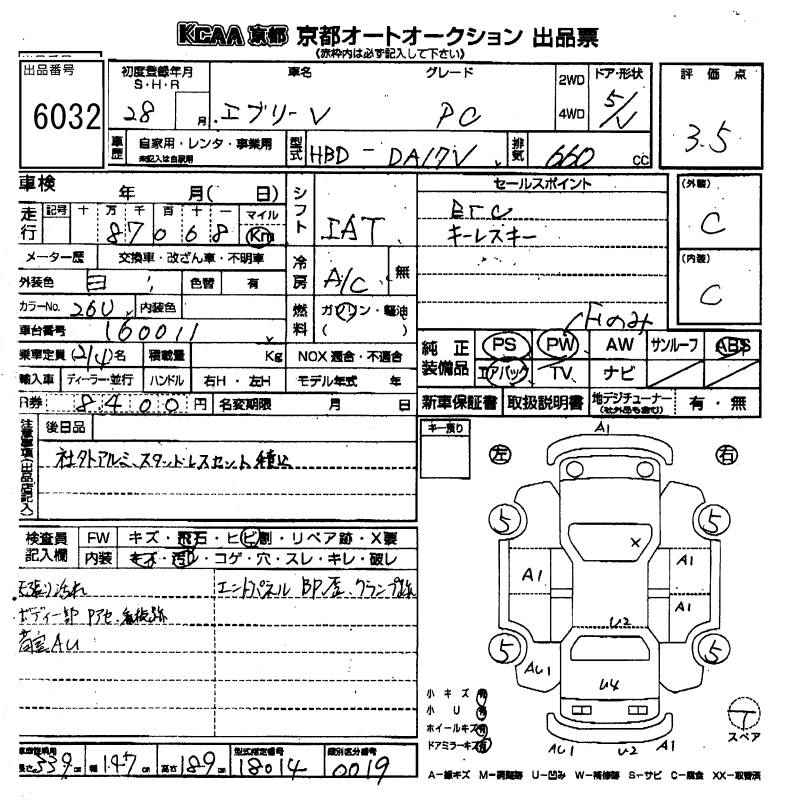 KCAA 京都 京都オートオークション 出品票
(赤枠内は必ず記入して下さい)
出品番号 6032
初度登録年月 S・H・R 28 月
車名 エブリーV
グレード PC
2WD 4WD
ドア・形状 5/V
評価点 3.5
車歴 自家用・レンタ・事業用 未記入は自家用
型式 HBD-DA17V
排気 660 cc
車検 年 月( 日)
シフト IAT
セールスポイント
ETC
キーレスキー
(外装) C
(内装) C
走行 記号 十 万 千 百 十 一 マイル
87068 Km
メーター歴 交換車・改ざん車・不明車
冷房 A/C 無
外装色 白 色替 有
カラーNo. 26U 内装色
燃料 ガソリン・軽油 ( )
車台番号 160011
Fのみ
乗車定員 (2)4名 積載量 Kg NOX適合・不適合
純正装備品 PS PW AW サンルーフ ABS
エアバック TV ナビ
輸入車 ディーラー・並行 ハンドル 右H・左H モデル年式 年
R券 8400円 名変期限 月 日
新車保証書 取扱説明書 地デジチューナー (社外品も含む) 有・無
注意事項(出品店記入) 後日品
社外アルミ、スタンドレスセット積込
キー預り
検査員記入欄 FW キズ・飛石・ヒビ割・リペア跡・X要
内装 キズ・汚レ・コゲ・穴・スレ・キレ・破レ
天張り汚れ
エンドパネル BP歪、クランプ跡
ボディー部 Pアセ、看板跡
荷室AU
A1
左 右
5 5
X
A1 A1
A1
U2
5 5
AU1 U4
AU1 U2 A1
小キズ 有
小U 有
ホイールキズ 有
ドアミラーキズ 有
T
スペア
長さ 339 cm 幅 147 cm 高さ 189 cm
型式指定番号 18014
類別区分番号 0019
A-線キズ M-調整跡 U-凹み W-補修跡 S-サビ C-腐食 XX-取替済